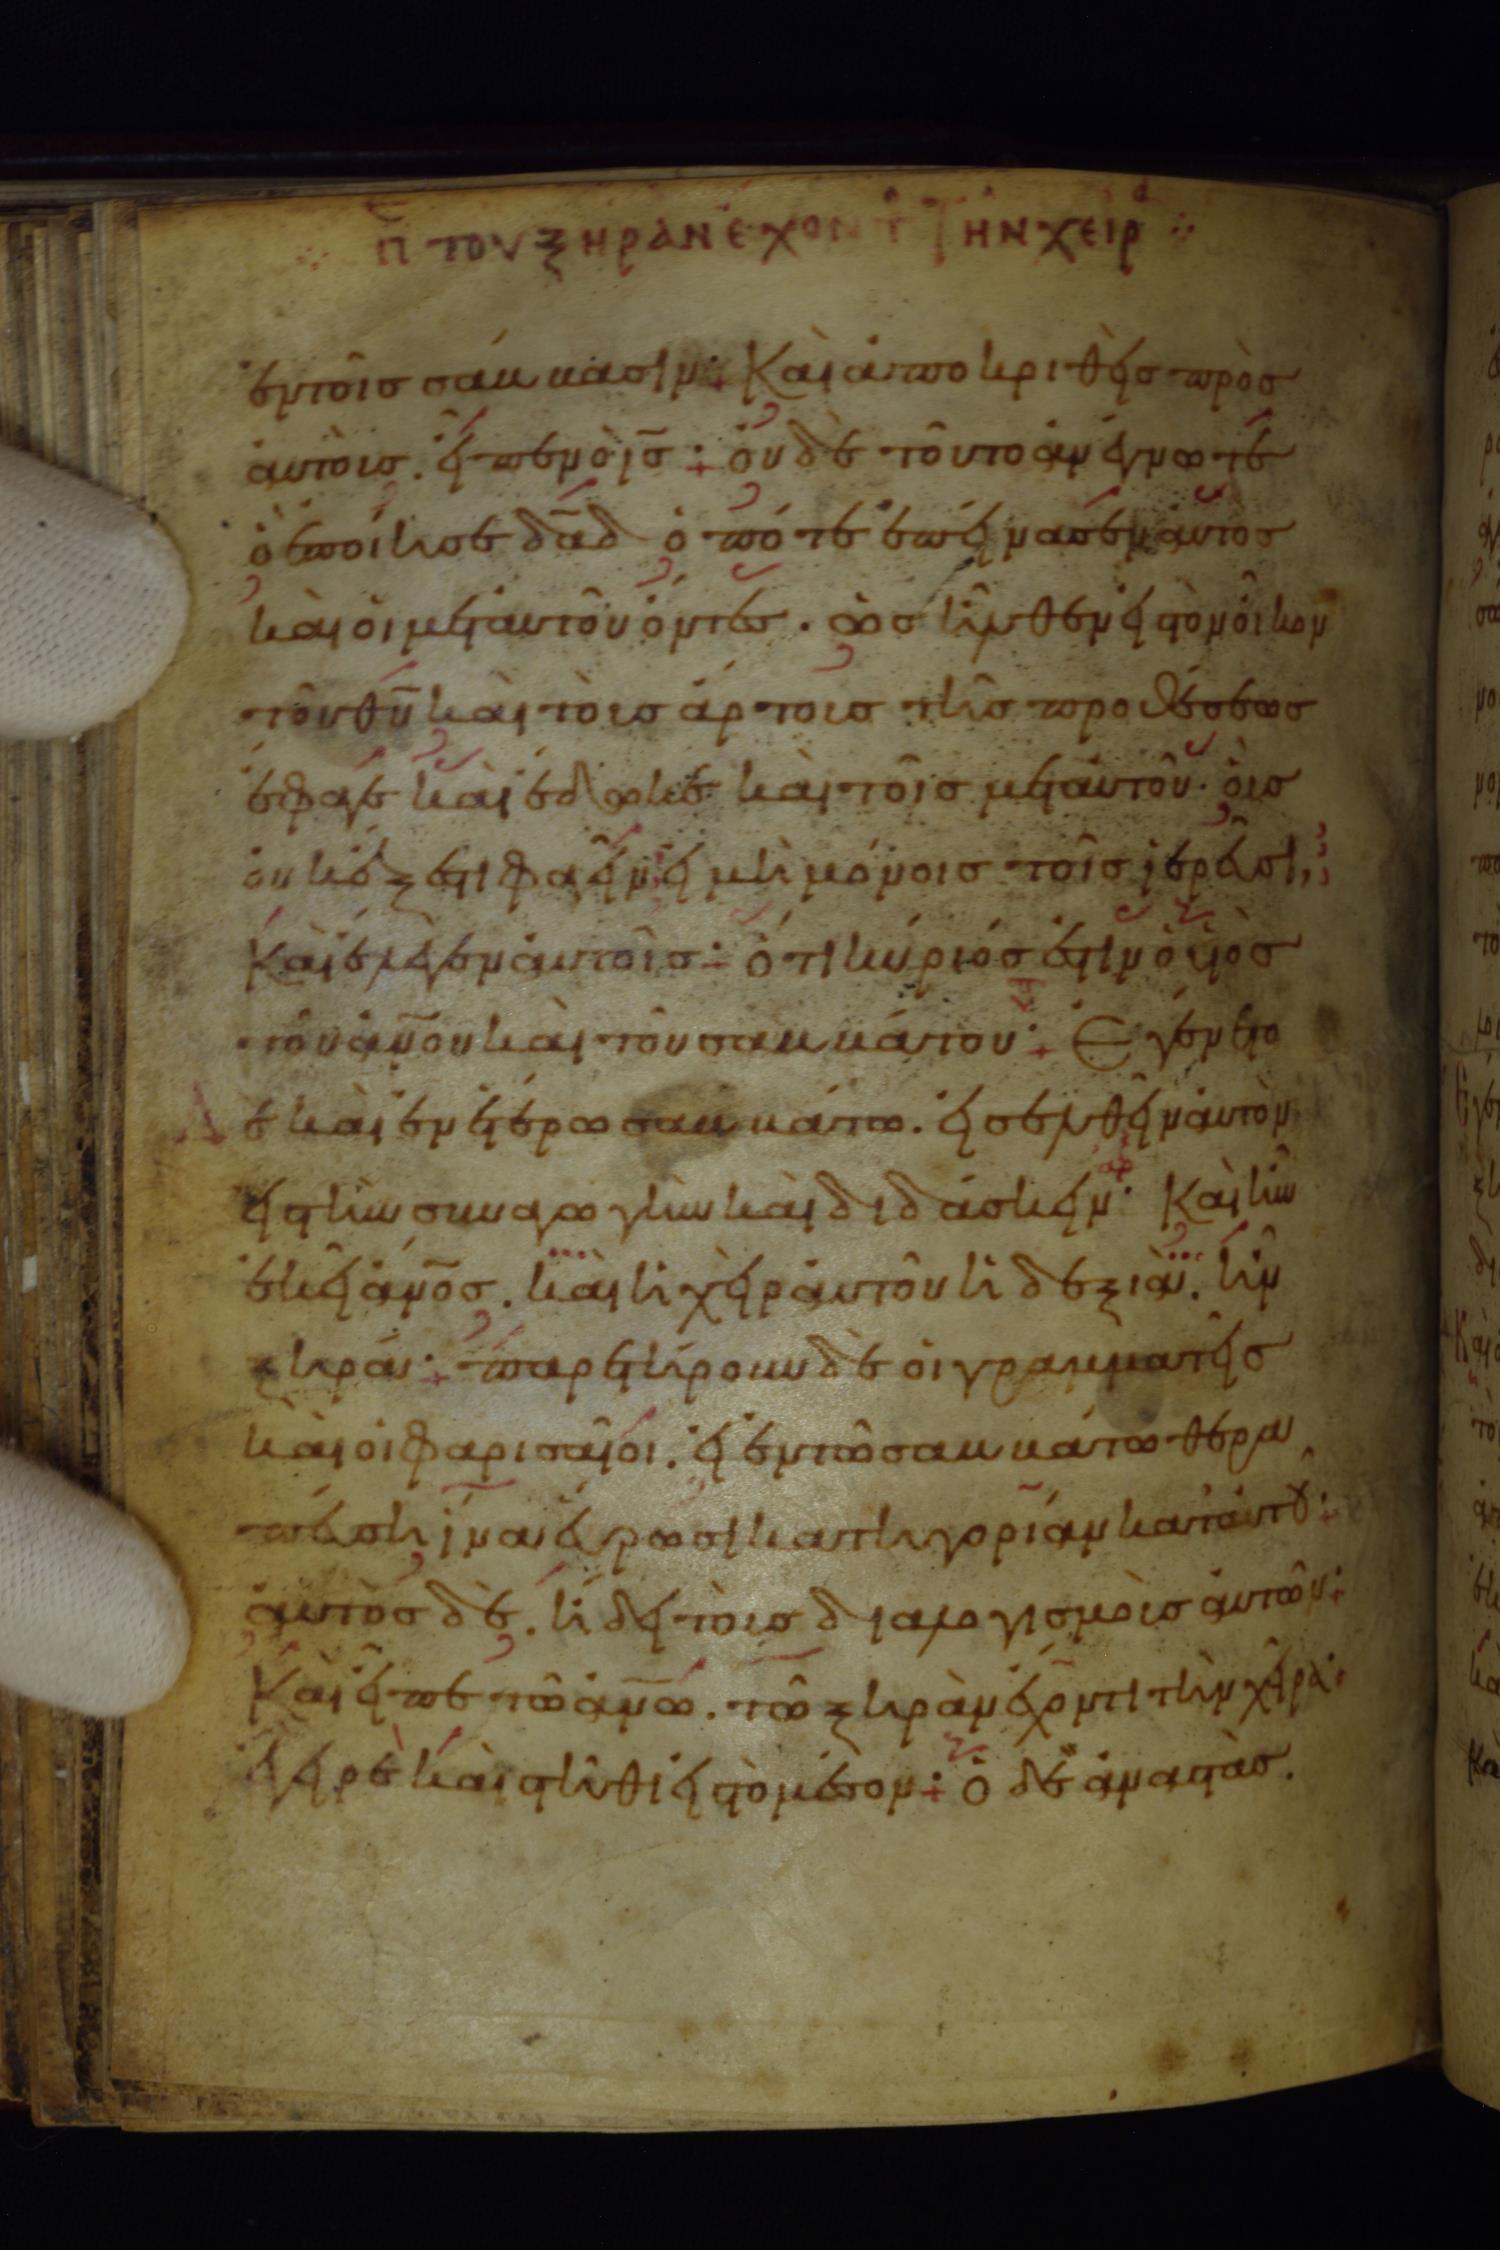 Π τοῦ ξηρὰν ἔχοντ τὴν χεῖρ
ἐν τοῖς σάββασιν· Καὶ ἀποκριθεὶς πρὸς
αὐτοὺς. εἶπεν ὁ ις· οὐδὲ τοῦτο ἀνέγνωτε
ὃ ἐποίησε δαδ ὁπότε ἐπείνασεν αὐτὸς
καὶ οἱ μετ αὐτοῦ ὄντες. ὡς εἰσῆλθεν εἰς τὸν οἶκον
τοῦ θυ καὶ τοὺς ἄρτους τῆς προθέσεως
ἔφαγε καὶ ἔδωκε καὶ τοῖς μετ αὐτοῦ· οὓς
οὐκ ἔξεστι φαγεῖν εἰ μὴ μόνοις τοῖς ἱερεῦσι,
Καὶ ἔλεγεν αὐτοῖς· ὅτι κύριός ἐστιν ὁ υἱὸς
τοῦ ανου καὶ τοῦ σαββάτου· Ἐγένετο
δὲ καὶ ἐν ἑτέρω σαββάτω. εἰσελθεῖν αὐτὸν
εἰς τὴν συναγωγὴν καὶ διδάσκειν· Καὶ ἦν
ἐκεῖ ανος. καὶ ἡ χεὶρ αὐτοῦ ἡ δεξιὰ. ἦν
ξηρά· παρετήρουν δὲ οἱ γραμματεῖς
καὶ οἱ φαρισαῖοι. εἰ ἐν τῶ σαββάτω θερα
πεύσει ἵνα εὕρωσι κατηγορίαν κατ αὐτοῦ·
αὐτὸς δὲ. ἤδει τοὺς διαλογισμοὺς αὐτῶν·
Καὶ εἶπε τῶ ανω. τῶ ξηρὰν ἔχοντι τὴν χεῖρα·
ἔγειρε καὶ στῆθι εἰς τὸ μέσον· ὁ δὲ ἀναστὰς.